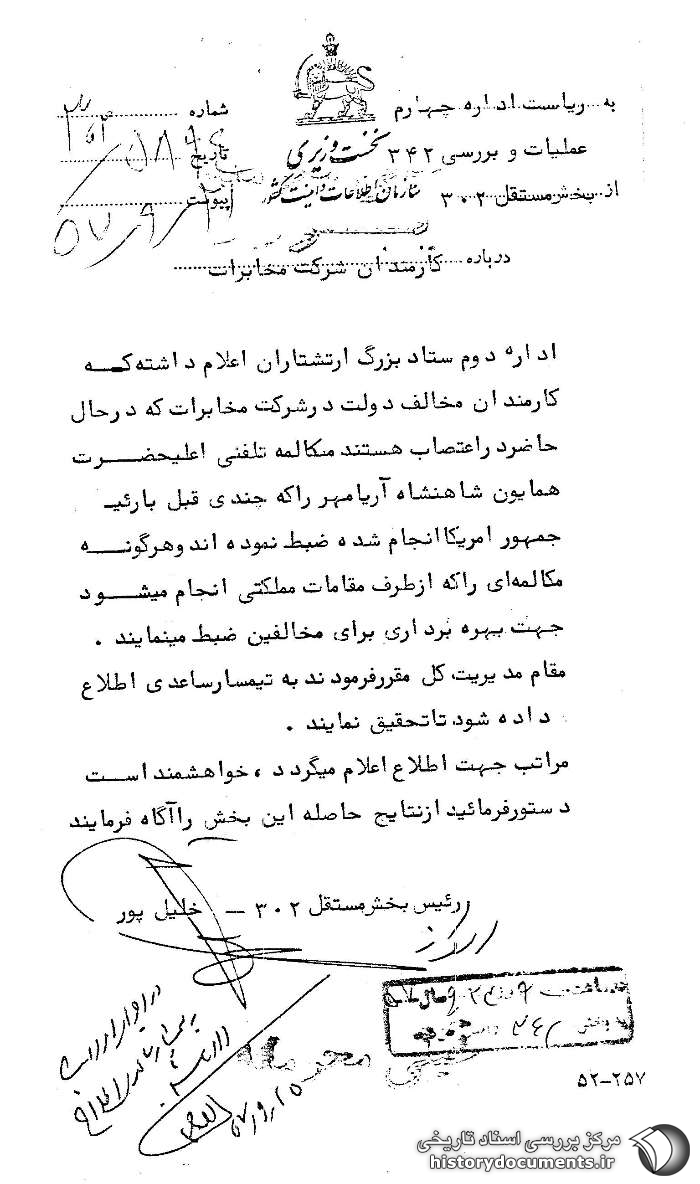 به ریاست اداره چهارم
عملیات و بررسی ۳۴۲
از بخش مستقل ۳۰۲
نخست وزیری
سازمان اطلاعات و امنیت کشور
شماره
تاریخ
پیوست
۵۷/۹/
درباره کارمندان شرکت مخابرات
اداره دوم ستاد بزرگ ارتشتاران اعلام داشته که
کارمندان مخالف دولت در شرکت مخابرات که در حال
حاضر در اعتصاب هستند مکالمه تلفنی اعلیحضرت
همایون شاهنشاه آریامهر را که چندی قبل با رئیـ
جمهور امریکا انجام شده ضبط نموده اند و هرگونه
مکالمه‌ای را که از طرف مقامات مملکتی انجام میشود
جهت بهره برداری برای مخالفین ضبط مینمایند .
مقام مدیریت کل مقرر فرمودند به تیمسار ساعدی اطلاع
داده شود تا تحقیق نمایند .
مراتب جهت اطلاع اعلام میگردد ، خواهشمند است
دستور فرمائید از نتایج حاصله این بخش را آگاه فرمایند
رئیس بخش مستقل ۳۰۲ - خلیل پور
خیلی محرمانه
۵۲-۲۵۷
مرکز بررسی اسناد تاریخی
historydocuments.ir